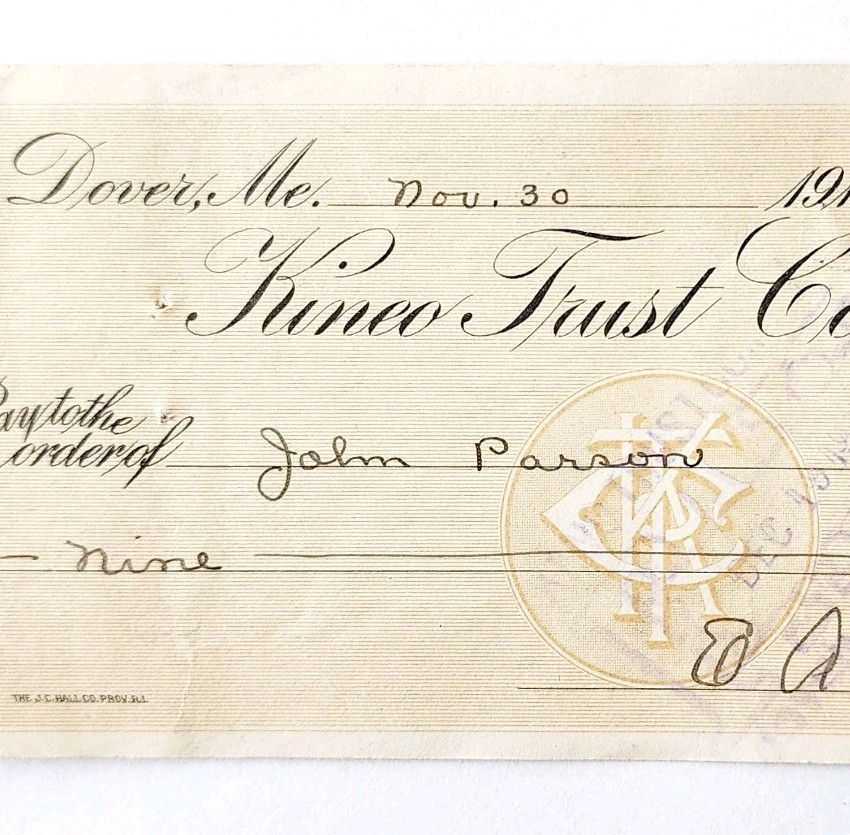 Dover, Me. Nov. 30 191
Kineo Trust Co
Pay to the
order of John Parson
Nine
E A
THE J.C. HALL CO. PROV. R.I.